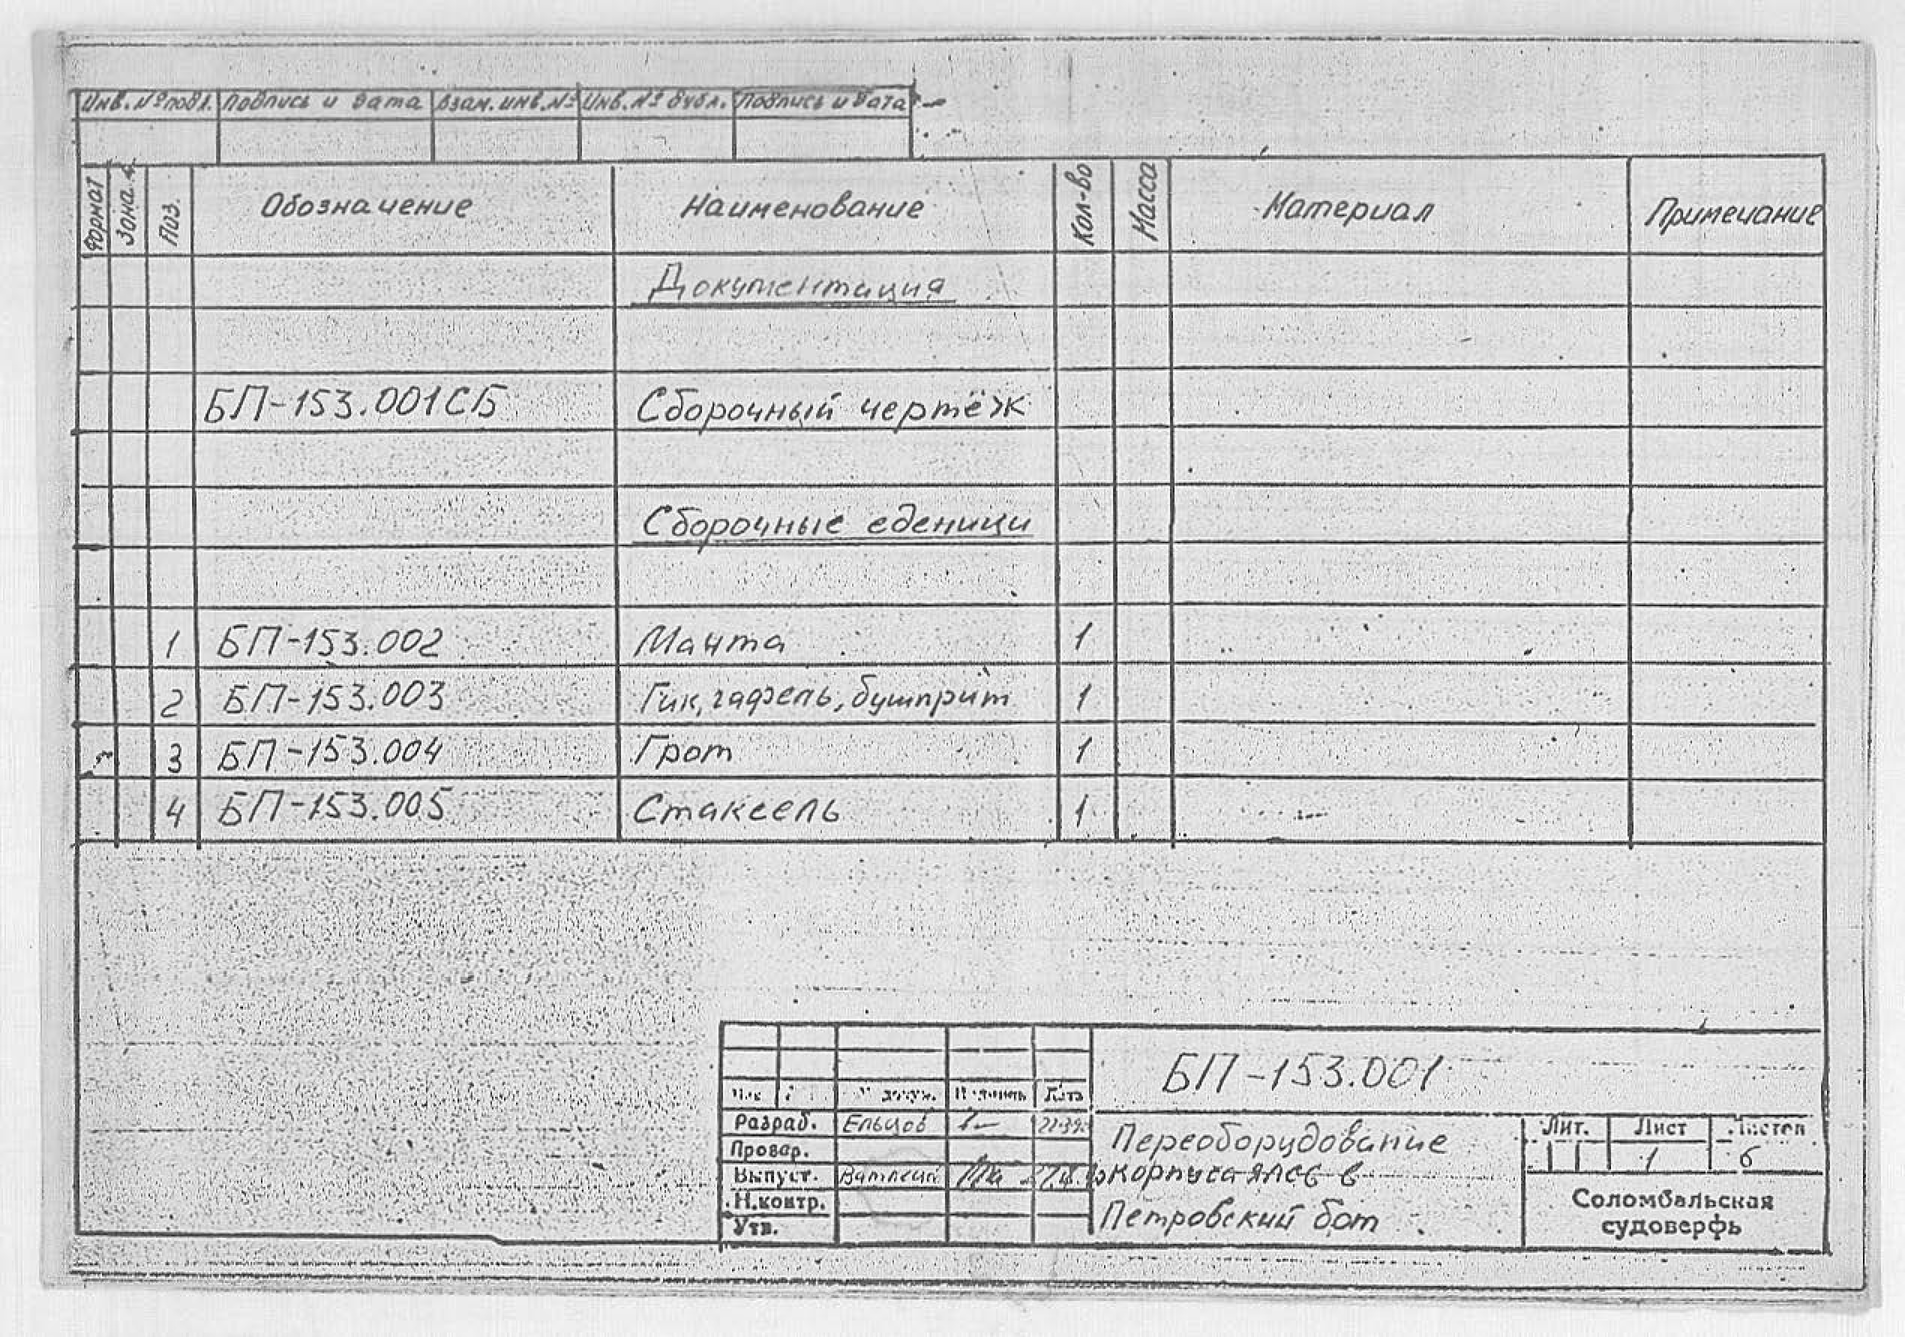 Инв. № подл. Подпись и дата Взам. инв. № Инв. № дубл. Подпись и дата
Формат Зона Поз. Обозначение Наименование Кол-во Масса Материал Примечание
Документация
БП-153.001СБ Сборочный чертёж
Сборочные еденици
1 БП-153.002 Мачта 1
2 БП-153.003 Гик, гафель, бушприт 1
3 БП-153.004 Грот 1
4 БП-153.005 Стаксель 1
БП-153.001
докум. Дата
Разраб. Ельцов
Провер.
Выпуст.
Н.контр.
Утв.
Переоборудование
корпуса ял66 в
Петровский бот
Лит. Лист Листов
1 6
Соломбальская
судоверфь